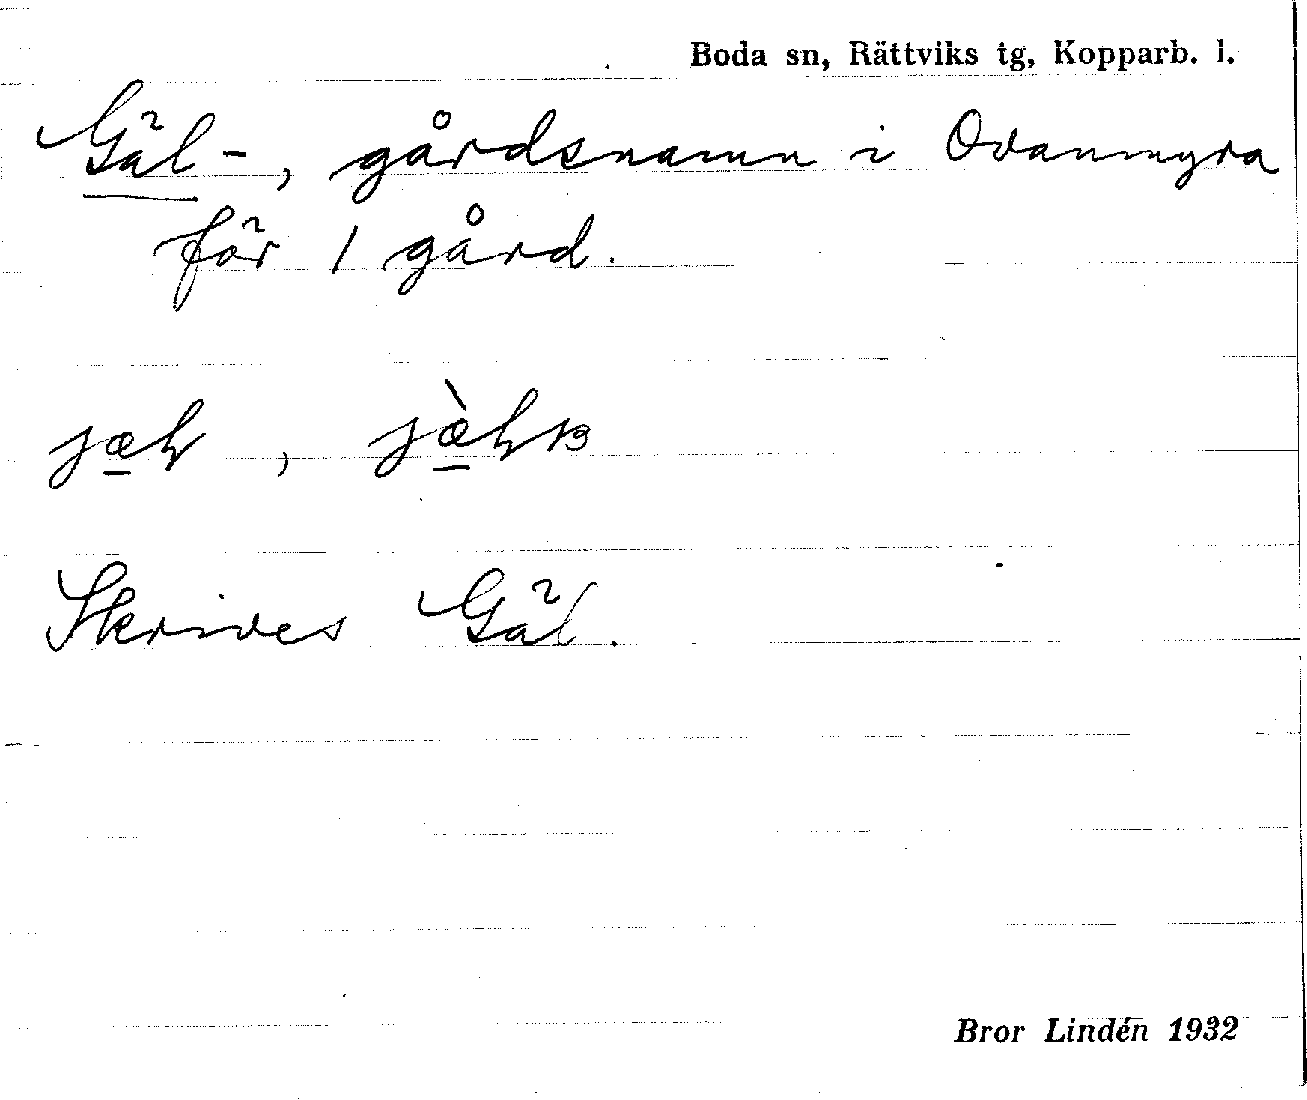 Boda sn, Rättviks tg, Kopparb. l.
Gäl-, gårdsnamn i Ovanmyra
för 1 gård.
Skrives Gäl.
Bror Lindén 1932